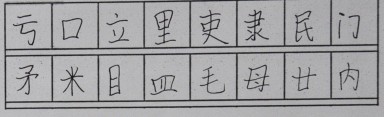 亏口立里吏隶民门
矛米目皿毛母廿内